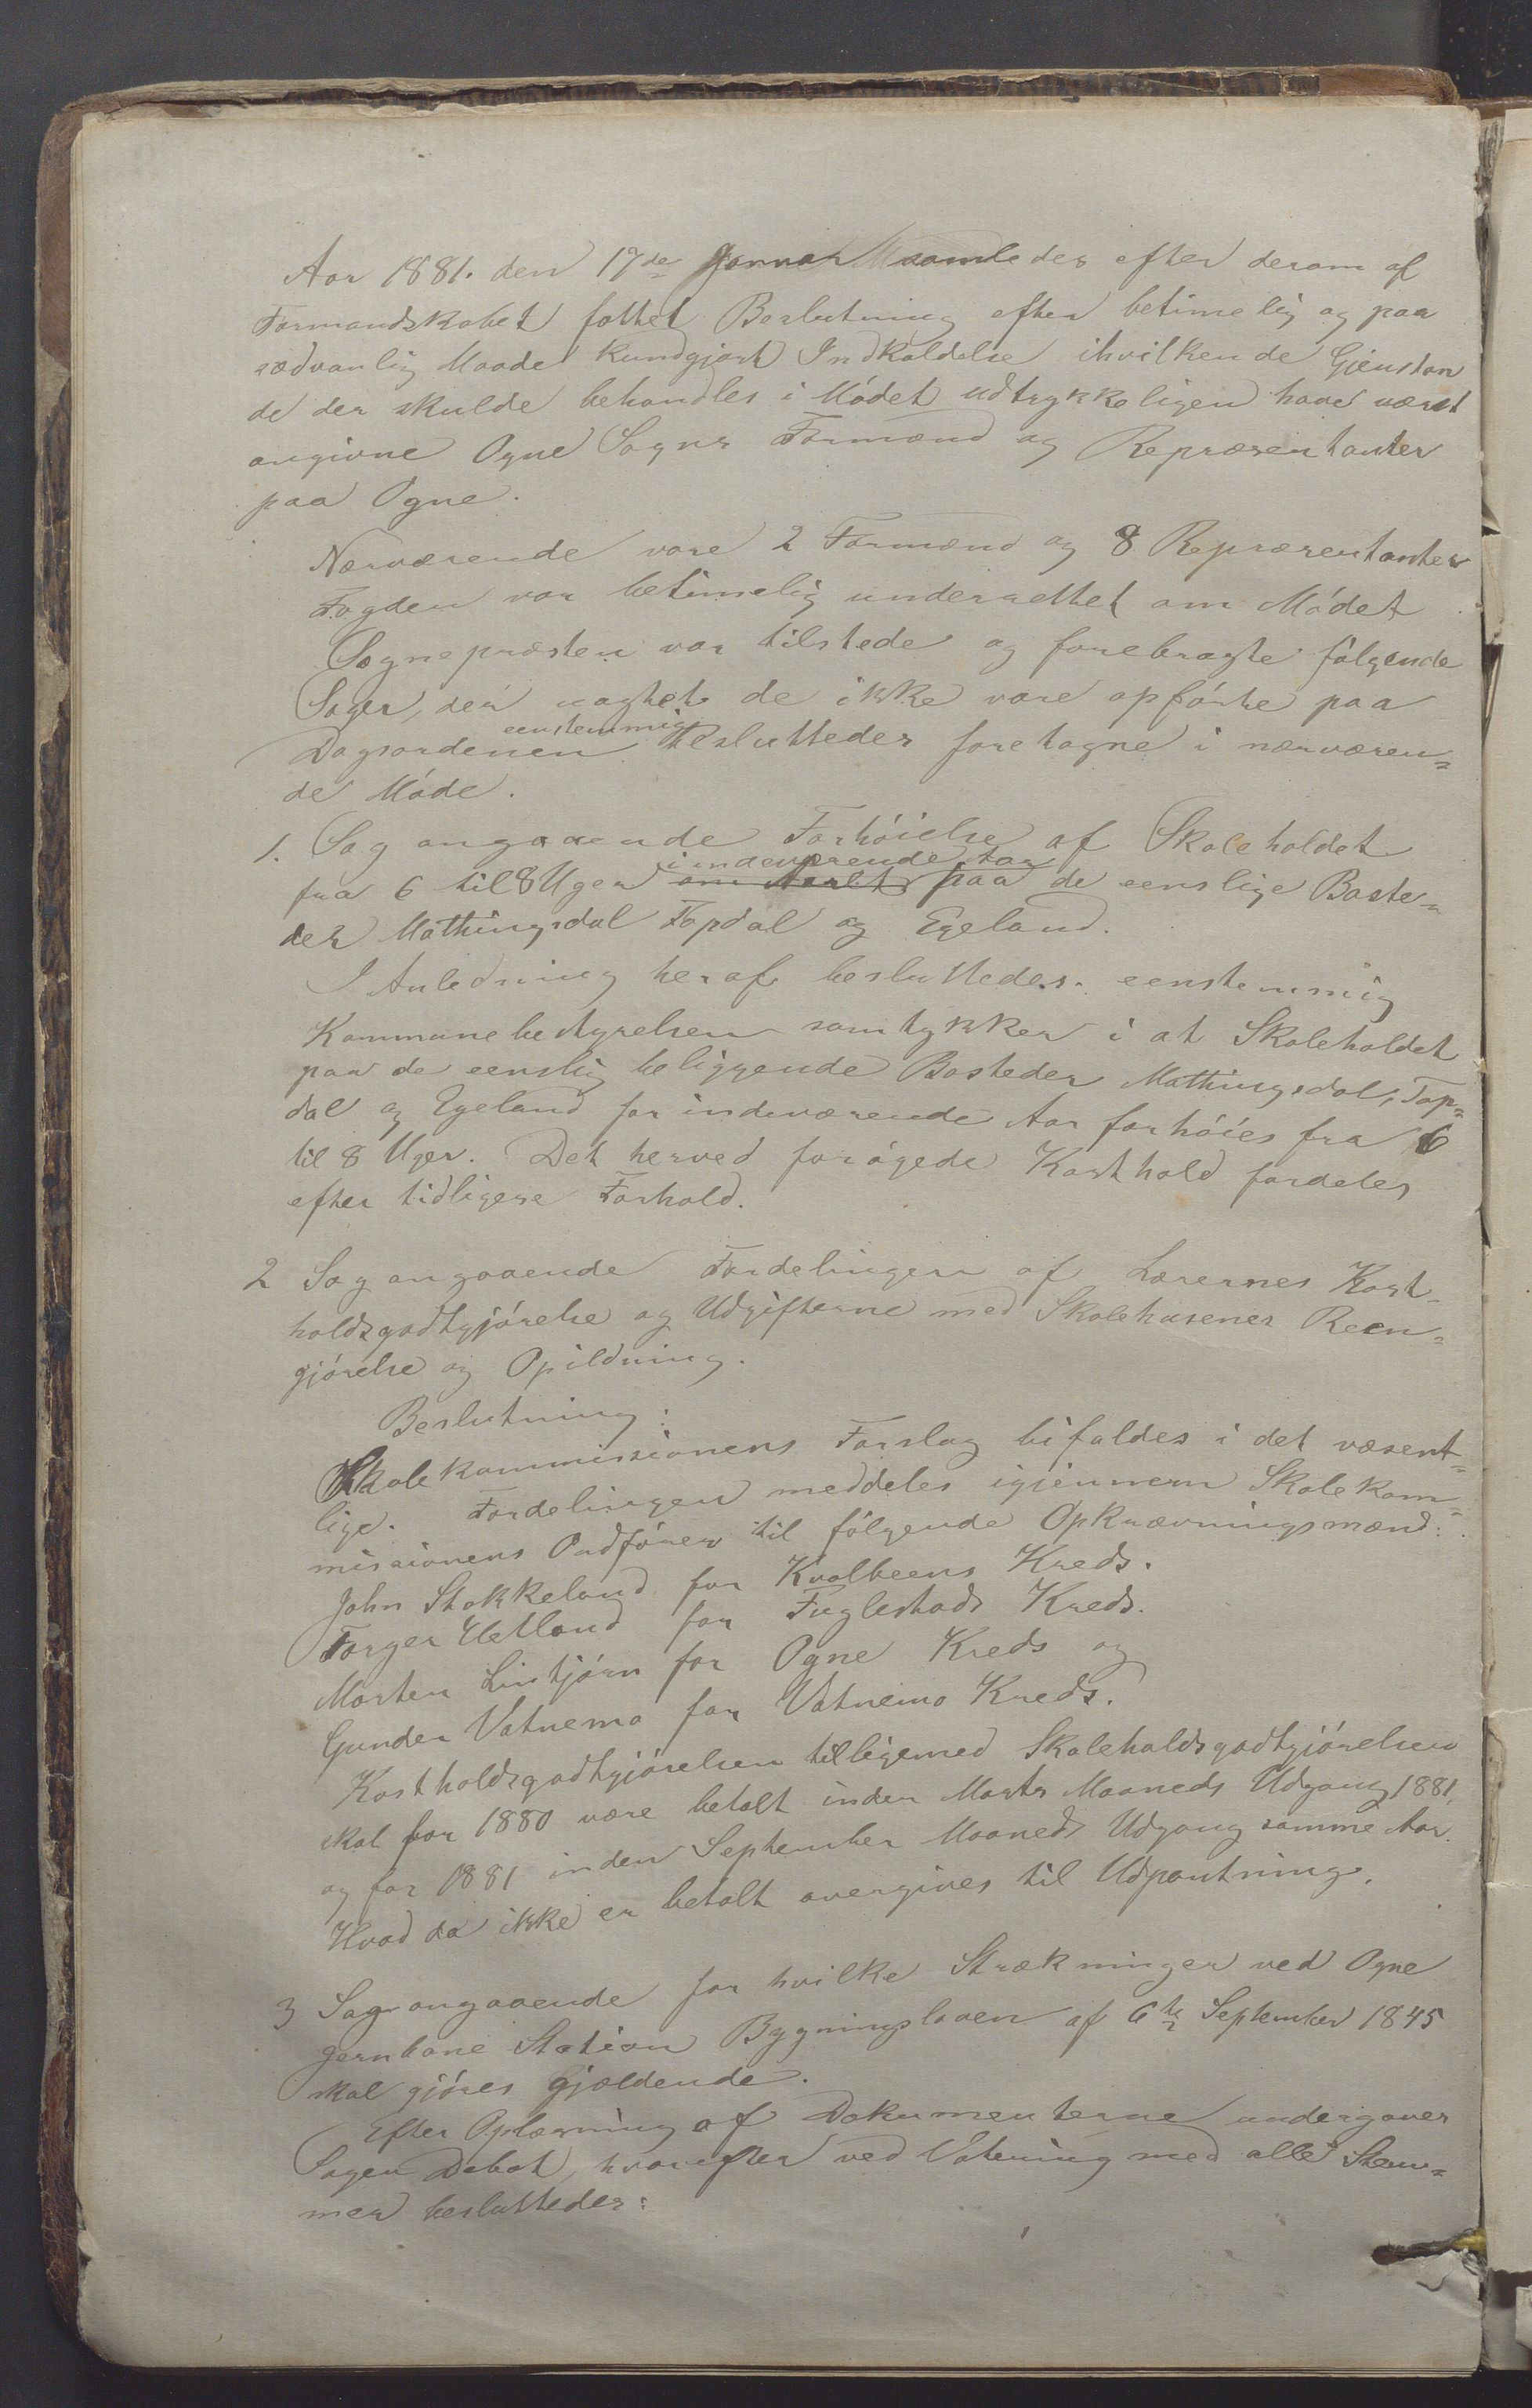 Aar 1881. den 17de Januar samledes efter derom af
Formandskabet fattet Beslutning efter betimelig og paa
sædvanlig Maade kundgjort Indkaldelse ihvilken de Gjenstan
de der skulde behandles i Mødet udtrykkeligen have været
angivne Ogne Sogns Formænd og Repræsentanter
paa Ogne.
Nærværende vare 2 Formænd og 8 Repræsentanter
Fogden var betimelig underrettet om Mødet
Sognepræsten var tilstede og forebragte følgende
Sager, der uagtet de ikke vare opførte paa
Dagsordenen eenstemmig besluttedes foretagne i nærværen=
de Møde.
1. Sag angaaende Forhøielse af Skoleholdet
fra 6 til 8 Uger i indeværende Aar paa de eenslige Boste=
der Mathingsdal Topdal og Egeland.
I Anledning heraf besluttedes eenstemmig
Kommunebestyrelsen samtykker i at Skoleholdet
paa de eenslig beliggende Bosteder Mathingsdal, Top=
dal og Egeland for indeværende Aar forhøies fra 6
til 8 Uger. Det herved forøgede Kosthold fordeles
efter tidligere Forhold.
2 Sag angaaende Fordelingen af Lærernes Kost-
holdsgodtgjørelse og Udgifterne med Skolehusenes Reen=
gjørelse og Opildning.
Beslutning:
Skolekommissionens Forslag bifaldes i det væsent=
lige. Fordelingen meddeles igjennem Skolekom=
missionens Ordfører til følgende Opkrævningsmænd:
John Stokkeland for Kvalbeens Kreds.
Torger Hetland for Fuglestads Kreds.
Morten Lintjørn for Ogne Kreds og
Gunder Vatnemo for Vatnemo Kreds.
Kostholdsgodtgjørelsen tilligemed Skoleholdsgodtgjørelsen
skal for 1880 være betalt inden Marts Maaneds Udgang 1881,
og for 1881 inden September Maaneds Udgang samme Aar.
Hvad da ikke er betalt overgives til Udpantning.
3 Sag angaaende for hvilke Strækninger ved Ogne
Jernbane Station Bygningsloven af 6te September 1845
skal gjøres gjældende.
Efter Oplæsning af Dokumenterne undergaves
Sagen Debat, hvorefter ved Votering med alle Stem=
mer besluttedes: